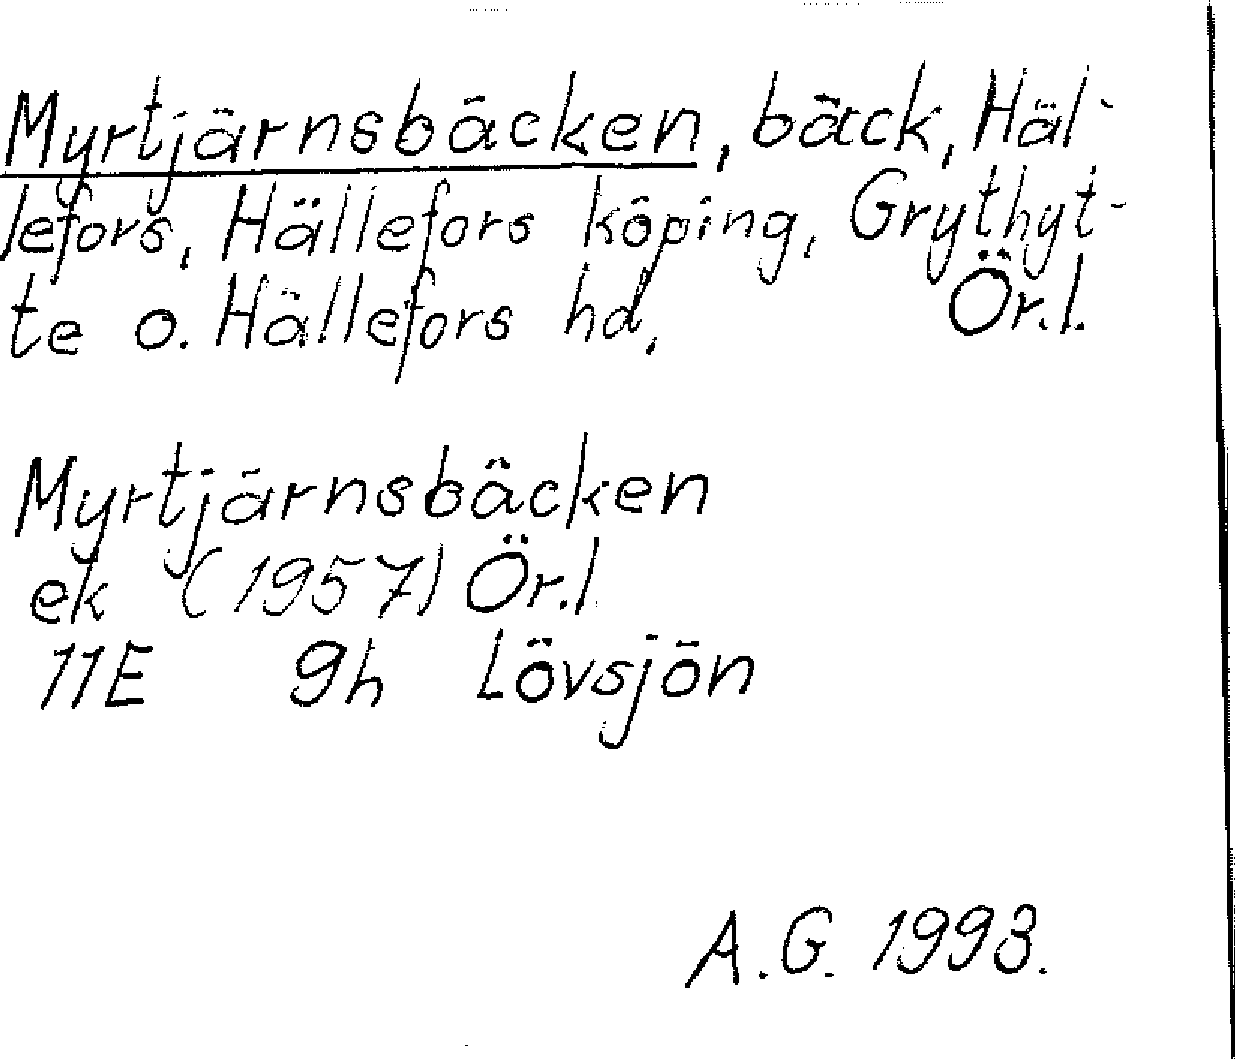 Myrtjärnsbäcken, bäck, Häl-
lefors, Hällefors köping, Grythyt-
te o. Hällefors hd, Ör.l.
Myrtjärnsbäcken
ek (1957) Ör.l
11E 9h Lövsjön
A.G. 1993.